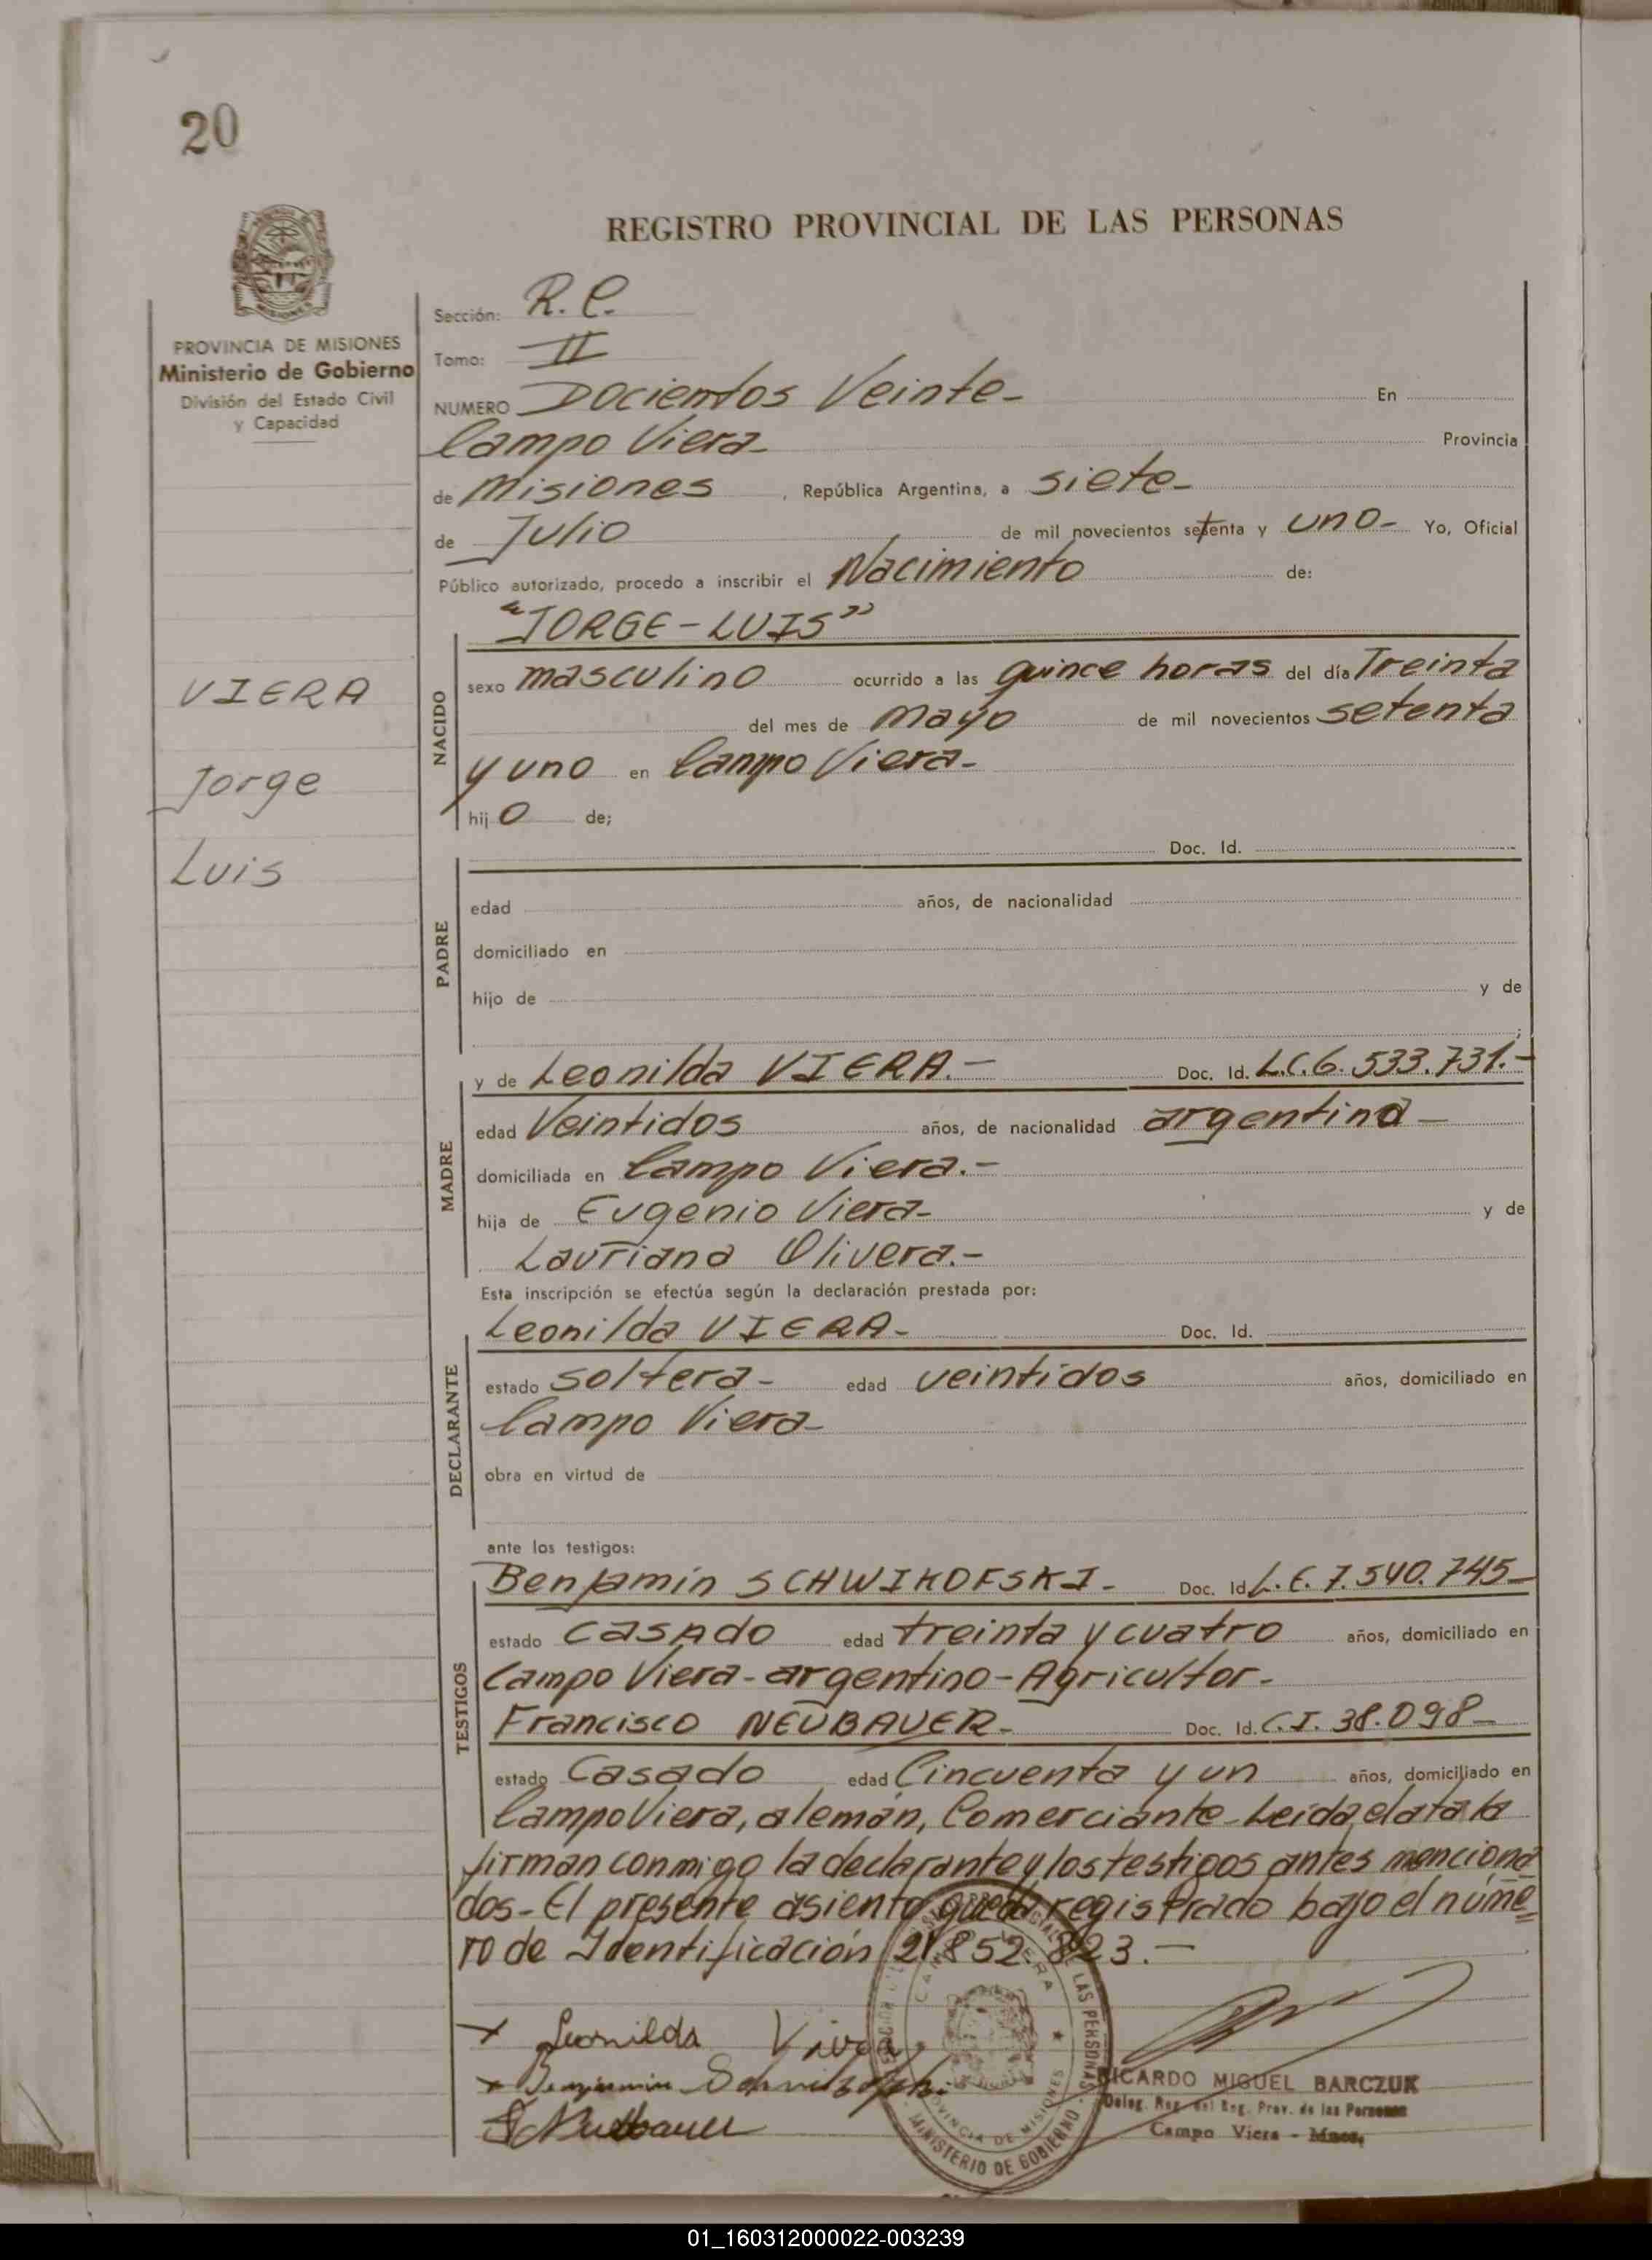 20
REGISTRO PROVINCIAL DE LAS PERSONAS
PROVINCIA DE MISIONES
Ministerio de Gobierno
División del Estado Civil
y Capacidad
Sección: R. C.
Tomo: II
NUMERO Docientos Veinte- En
Campo Viera- Provincia
de Misiones , República Argentina, a siete-
de Julio de mil novecientos setenta y uno- Yo, Oficial
Público autorizado, procedo a inscribir el Nacimiento de:
"JORGE-LUIS"
VIERA
Jorge
Luis
NACIDO
sexo masculino ocurrido a las quince horas del día Treinta
del mes de Mayo de mil novecientos setenta
y uno en Campo Viera-
hij o de;
PADRE
Doc. Id.
edad años, de nacionalidad
domiciliado en
hijo de y de
;
MADRE
y de Leonilda VIERA.- Doc. Id. L.C. 6.533.731.-
edad Veintidos años, de nacionalidad argentina-
domiciliada en Campo Viera.-
hija de Eugenio Viera- y de
Lauriana Olivera.-
Esta inscripción se efectúa según la declaración prestada por:
DECLARANTE
Leonilda VIERA- Doc. Id.
estado soltera- edad veintidos años, domiciliado en
Campo Viera-
obra en virtud de
ante los testigos:
TESTIGOS
Benjamin SCHWIKOFSKI- Doc. Id. L.E. 7.540.745-
estado casado edad treinta y cuatro años, domiciliado en
Campo Viera-argentino-Agricultor-
Francisco NEUBAUER- Doc. Id. C.I. 38.098-
estado Casado edad Cincuenta y un años, domiciliado en
Campo Viera, alemán, Comerciante-Leida el ata la
firman conmigo la declarante y los testigos antes menciona
dos-El presente asiento queda registrado bajo el núme=
ro de Identificación 21.852.823.-
x Leonilda Viera
x Benjamin
Neubauer
CAMPO VIERA
LAS PERSONAS
PROVINCIA DE MISIONES
MINISTERIO DE GOBIERNO
RICARDO MIGUEL BARCZUK
Deleg. Reg. del Reg. Prov. de las Personas
Campo Viera - Mnes.
01_160312000022-003239